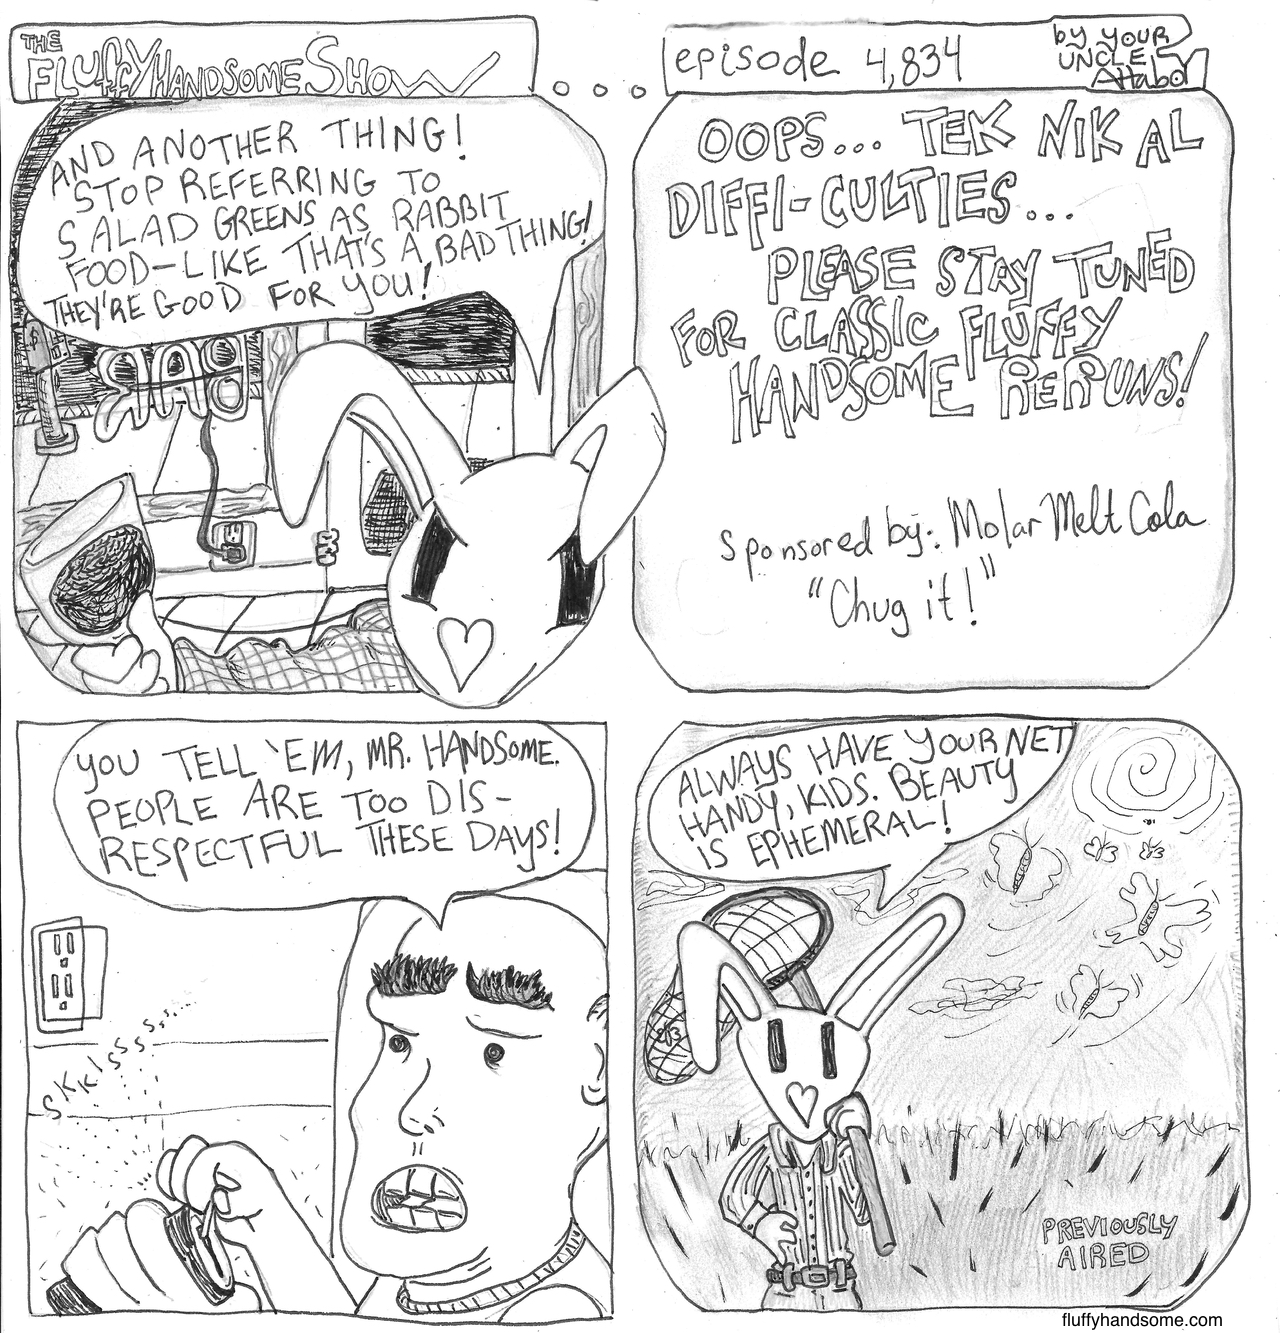 THE
FLUFFYHANDSOMESHOW
episode 4,834
by YOUR
UNCLE
AttaboY
AND ANOTHER THING!
STOP REFERRING TO
SALAD GREENS AS RABBIT
FOOD-LIKE THAT'S A BAD THING!
THEY'RE GOOD FOR YOU!
BAR
OOPS... TEK NIK AL
DIFFI-CULTIES...
PLEASE STAY TUNED
FOR CLASSIC FLUFFY
HANDSOME RERUNS!
Sponsored by: Molar Melt Cola
"Chug it!"
YOU TELL 'EM, MR. HANDSOME.
PEOPLE ARE TOO DIS-
RESPECTFUL THESE DAYS!
SKKISSSSSS....
ALWAYS HAVE YOUR NET
HANDY, KIDS. BEAUTY
IS EPHEMERAL!
PREVIOUSLY
AIRED
fluffyhandsome.com